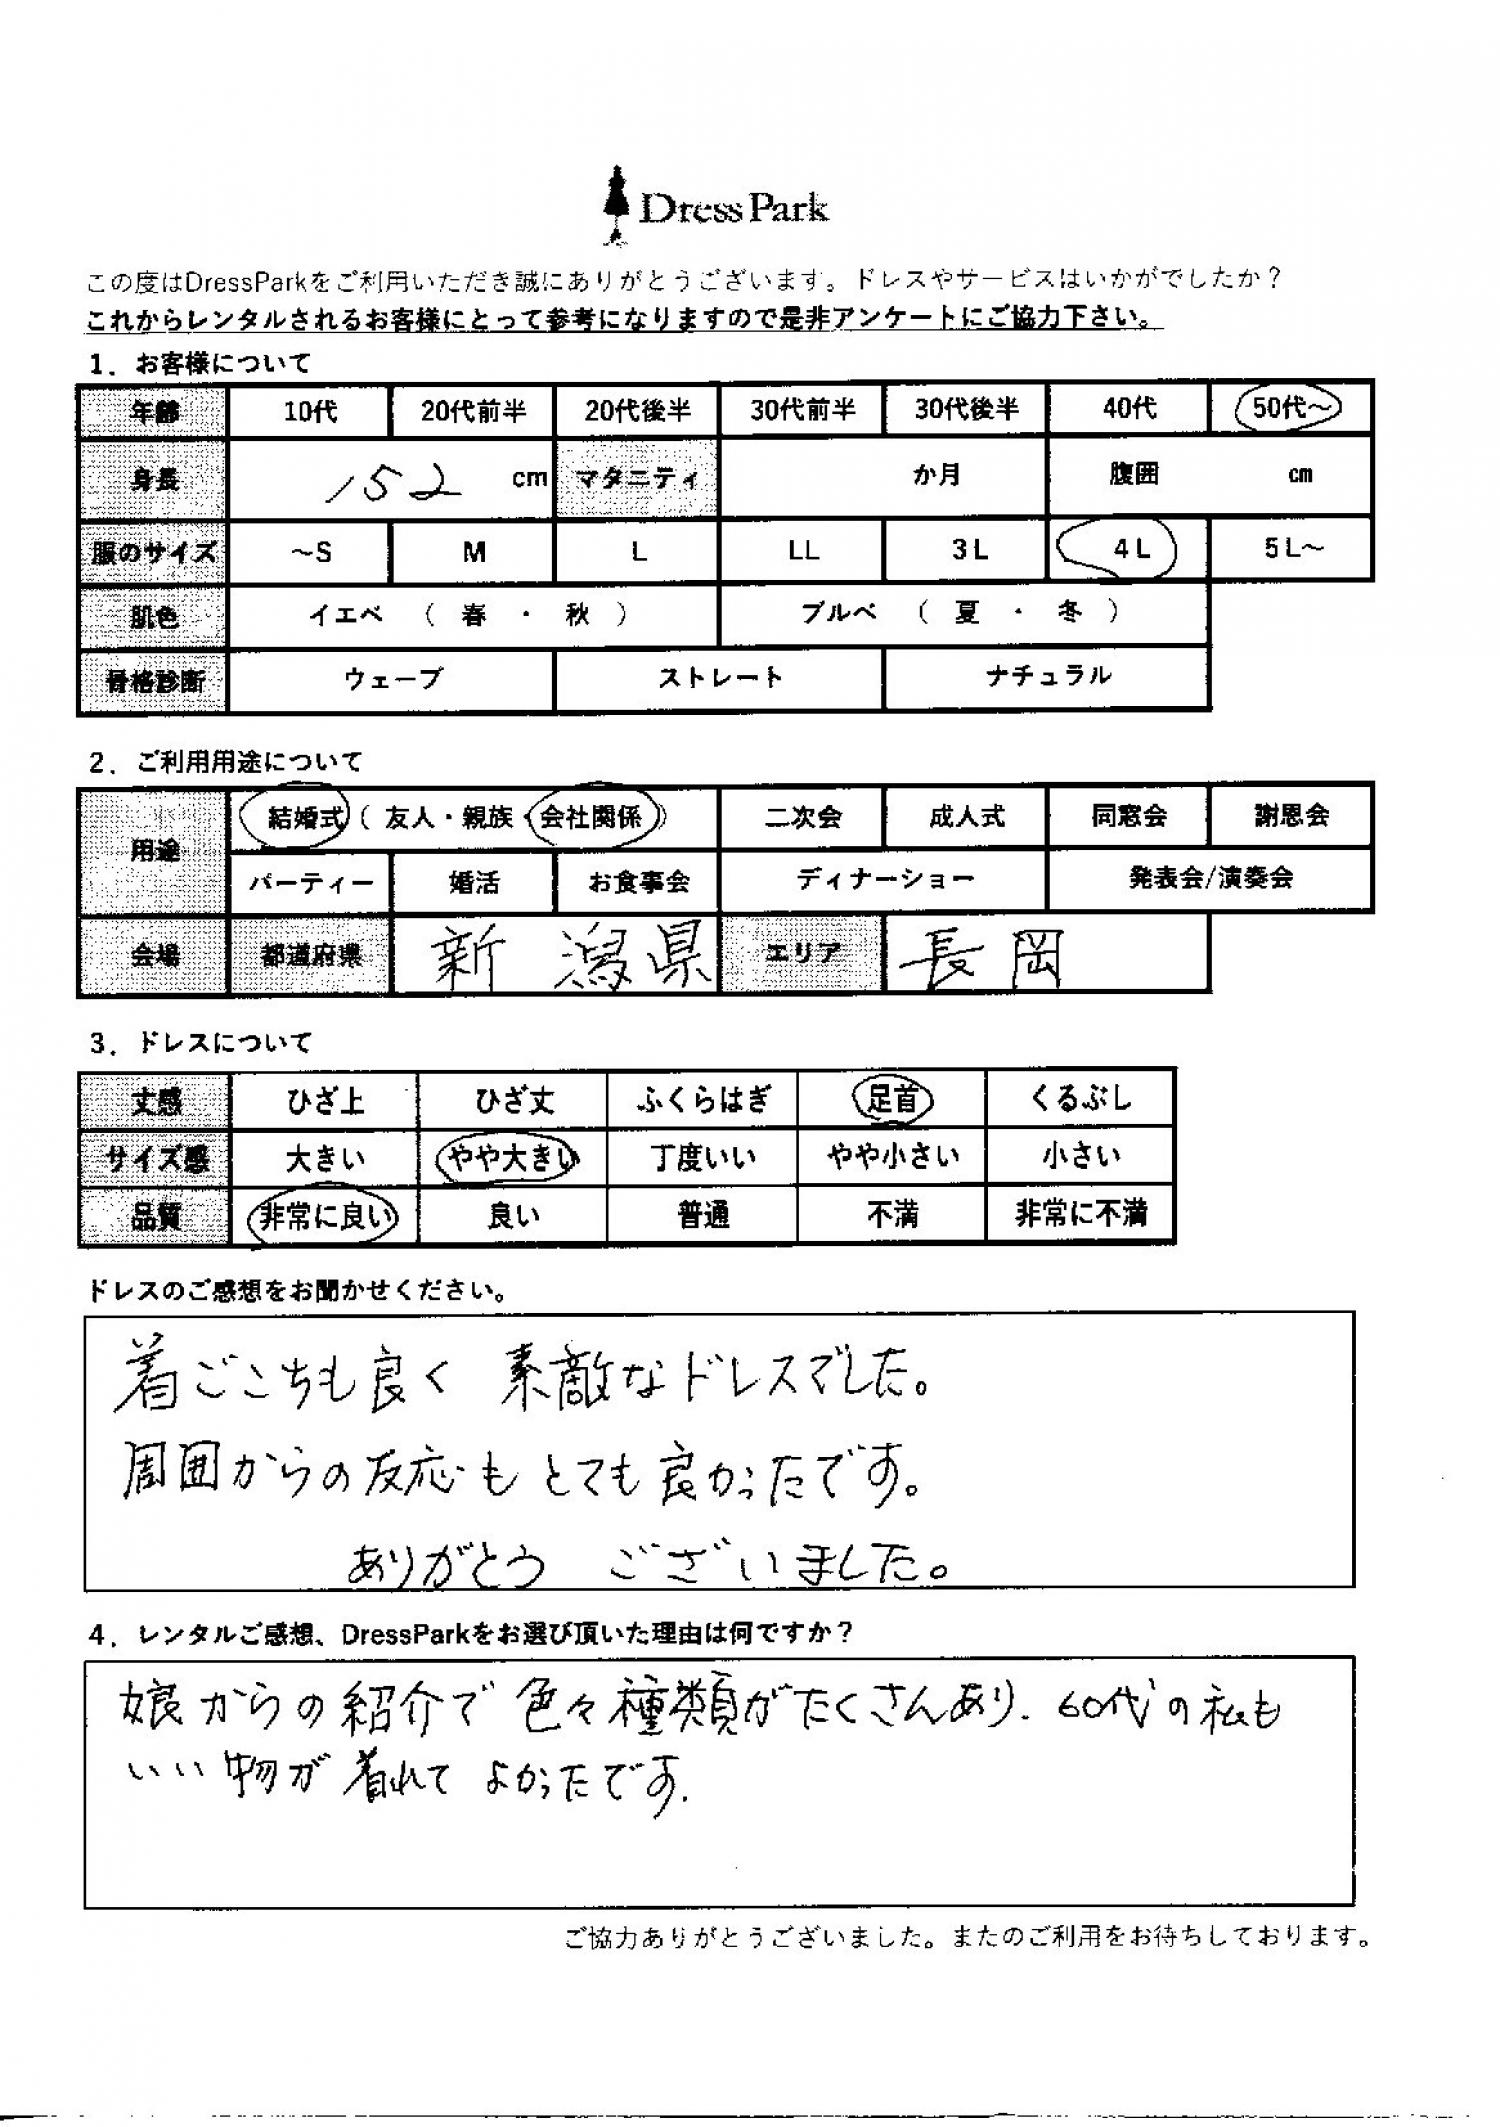 Dress Park
この度はDressParkをご利用いただき誠にありがとうございます。ドレスやサービスはいかがでしたか？
これからレンタルされるお客様にとって参考になりますので是非アンケートにご協力下さい。
1．お客様について
年齢 10代 20代前半 20代後半 30代前半 30代後半 40代 50代～
身長 152 cm マタニティ か月 腹囲 cm
服のサイズ ～S M L LL 3L 4L 5L～
肌色 イエベ （ 春 ・ 秋 ） ブルベ （ 夏 ・ 冬 ）
骨格診断 ウェーブ ストレート ナチュラル
2．ご利用用途について
用途 結婚式（ 友人・親族・会社関係 ） 二次会 成人式 同窓会 謝恩会
パーティー 婚活 お食事会 ディナーショー 発表会/演奏会
会場 都道府県 新潟県 エリア 長岡
3．ドレスについて
丈感 ひざ上 ひざ丈 ふくらはぎ 足首 くるぶし
サイズ感 大きい やや大きい 丁度いい やや小さい 小さい
品質 非常に良い 良い 普通 不満 非常に不満
ドレスのご感想をお聞かせください。
着ごこちも良く 素敵なドレスでした。
周囲からの反応も とても良かったです。
ありがとう ございました。
4．レンタルご感想、DressParkをお選び頂いた理由は何ですか？
娘からの紹介で 色々種類がたくさんあり. 60代の私も
いい物が着れて よかったです.
ご協力ありがとうございました。またのご利用をお待ちしております。